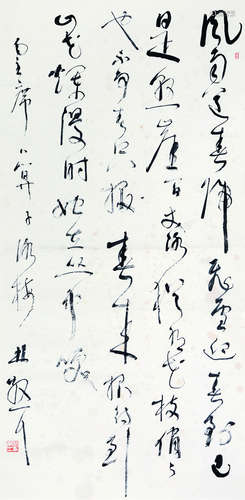 風雨送春歸飛雪迎春到已
是悬崖百丈冰猶有花枝俏々
也不争春只把春来報待到
山花爛漫时她在丛中笑
毛主席卜算子咏梅